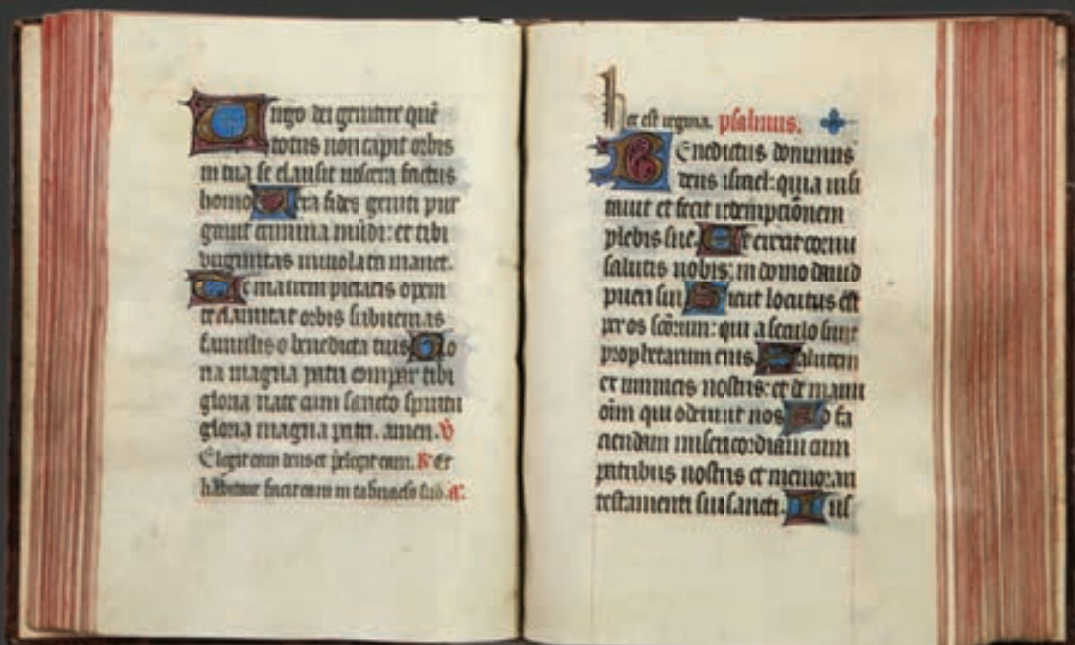 Virgo dei genitrix quē
totus non capit orbis
in tua se clausit viscera factus
homo Vera fides geniti pur
gauit crimina mūdi: et tibi
virginitas inuiolata manet.
Te matrem pietatis opem
te clamitat orbis subuenias
famulis o benedicta tuis Glo
ria magna patri compar tibi
gloria nate cum sancto spiritu
gloria magna patri. amen. V̄
Elegit eam deus et pelegit eam. R̄ Et
habitare facit eam in tabnaclo suo. a͞.
hec est regina. psalmus.
Benedictus dominus
deus israel: quia uisi
tauit et fecit redemptionem
plebis sue. Et erexit cornu
salutis nobis: in domo dauid
pueri sui Sicut locutus est
per os sc̄orum: qui a seculo sunt
prophetarum eius Salutem
ex inimicis nostris: et de manu
oīm qui oderunt nos Ad fa
ciendam misericordiam cum
patribus nostris et memorari
testamenti sui sancti. Ius